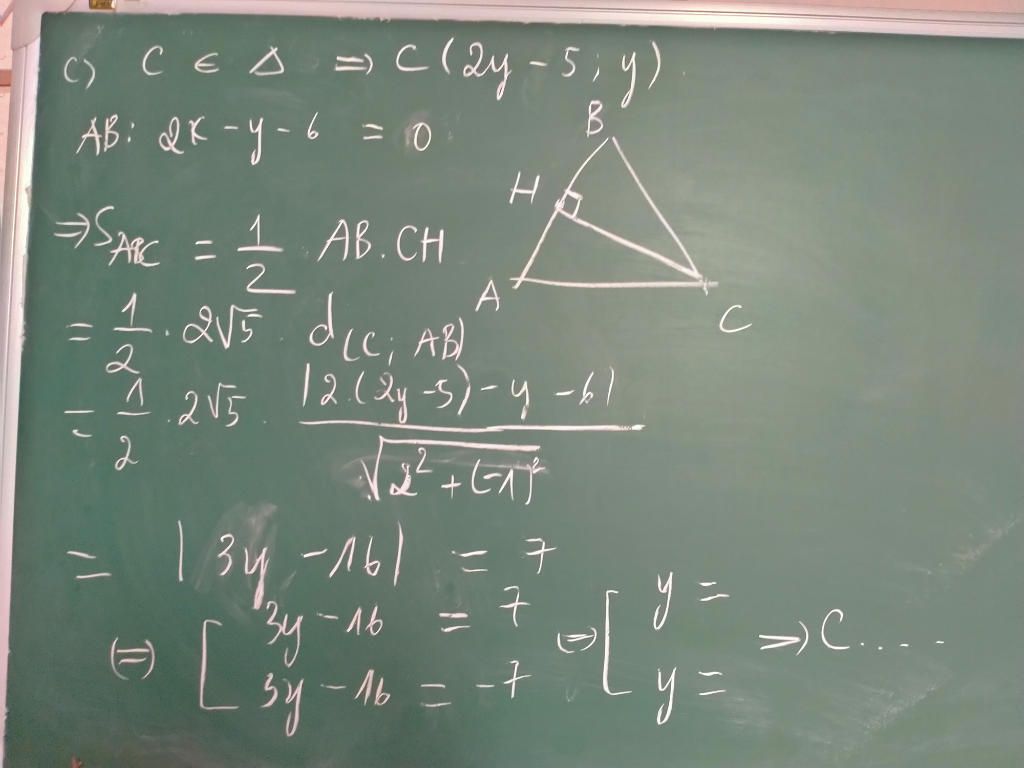 c) C ∈ Δ ⇒ C(2y - 5; y)
AB: 2x - y - 6 = 0
B
H
A
C
⇒ S_ABC = 1/2 . AB.CH
= 1/2 . 2√5 . d(C; AB)
= 1/2 . 2√5 . |2.(2y - 5) - y - 6| / √(2² + (-1)²)
= |3y - 16| = 7
(=) [ 3y - 16 = 7 (=) [ y = ⇒ C.....
3y - 16 = -7 y =